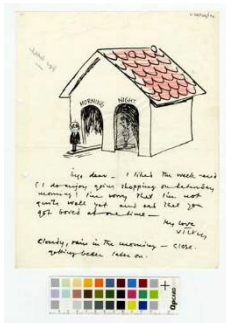 MORNING NIGHT
dear - I liked the week-end
(I do enjoy going shopping on Saturday
morning! I'm sorry that I'm not
quite well yet and that you
got bored at one time -
my love
VICKY
Cloudy, rain in the morning - close.
getting better later on.